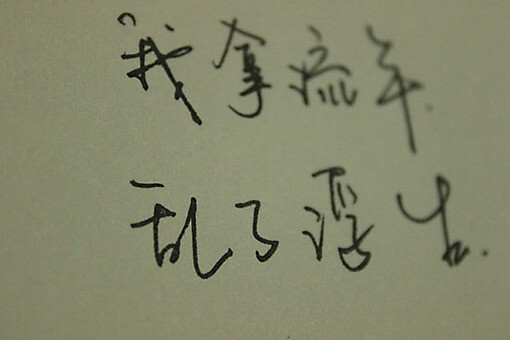 “我拿流年.
乱了浮生.